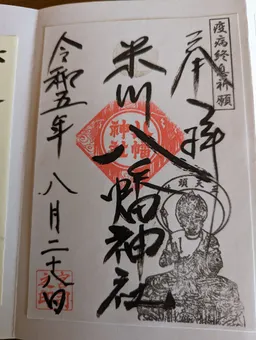 疫病終息祈願
奉拝
米川八幡神社
八幡神社
令和五年八月二十八日